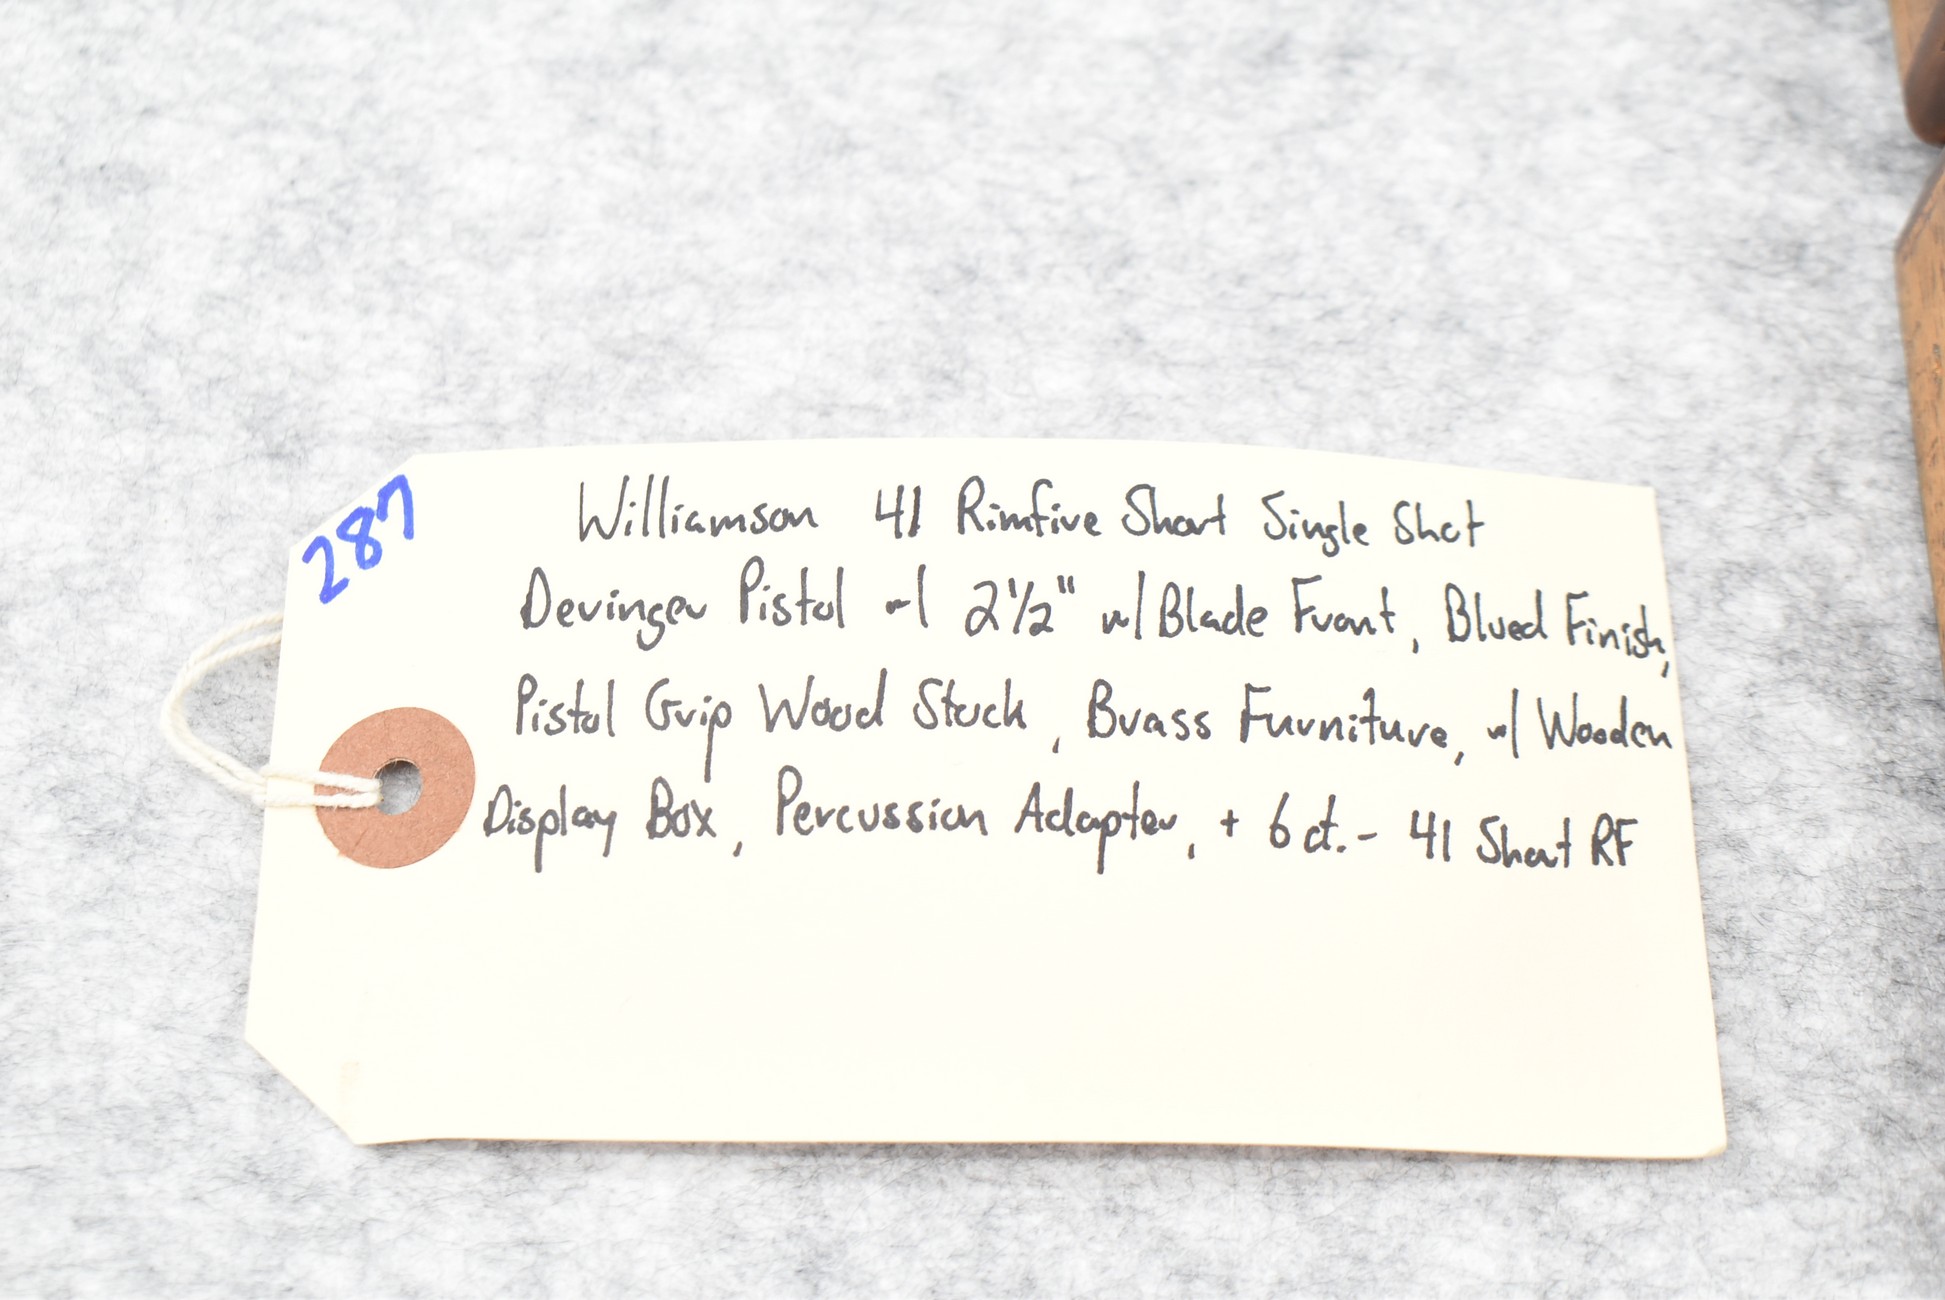 287
Williamson 41 Rimfire Short Single Shot
Deringer Pistol w/ 2½" w/ Blade Front, Blued Finish,
Pistol Grip Wood Stock, Brass Furniture, w/ Wooden
Display Box, Percussion Adapter, + 6 ct. - 41 Short RF